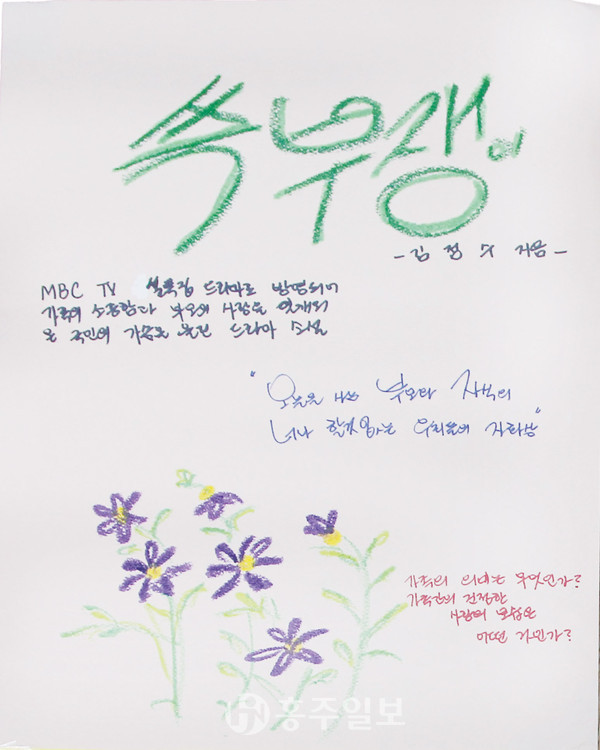 쑥부쟁이
- 김 정 수 지음 -
MBC TV 설특집 드라마로 방영되어
가족의 소중함과 부모의 사랑을 일깨워
온 국민의 가슴을 울린 드라마 소설
"오늘을 사는 부모와 자식의
너나 할것없는 우리들의 자화상"
가족의 의미는 무엇인가?
가족간의 진정한
사랑의 모습은
어떤 것인가?
홍주일보